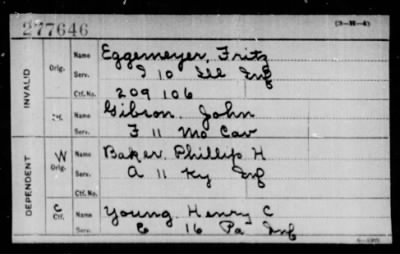 277646 (3-H-4)
INVALID
Orig. Name Eggemeyer, Fritz
Serv. I 10 Ill Inf
Ctf. No. 209 106
Ctf. Name Gibson, John
Serv. F 11 Mo Cav
DEPENDENT
W Orig. Name Baker, Phillip H
Serv. A 11 Ky Inf
Ctf. No.
C Ctf. Name Young, Henry C
Serv. 16 Pa Inf